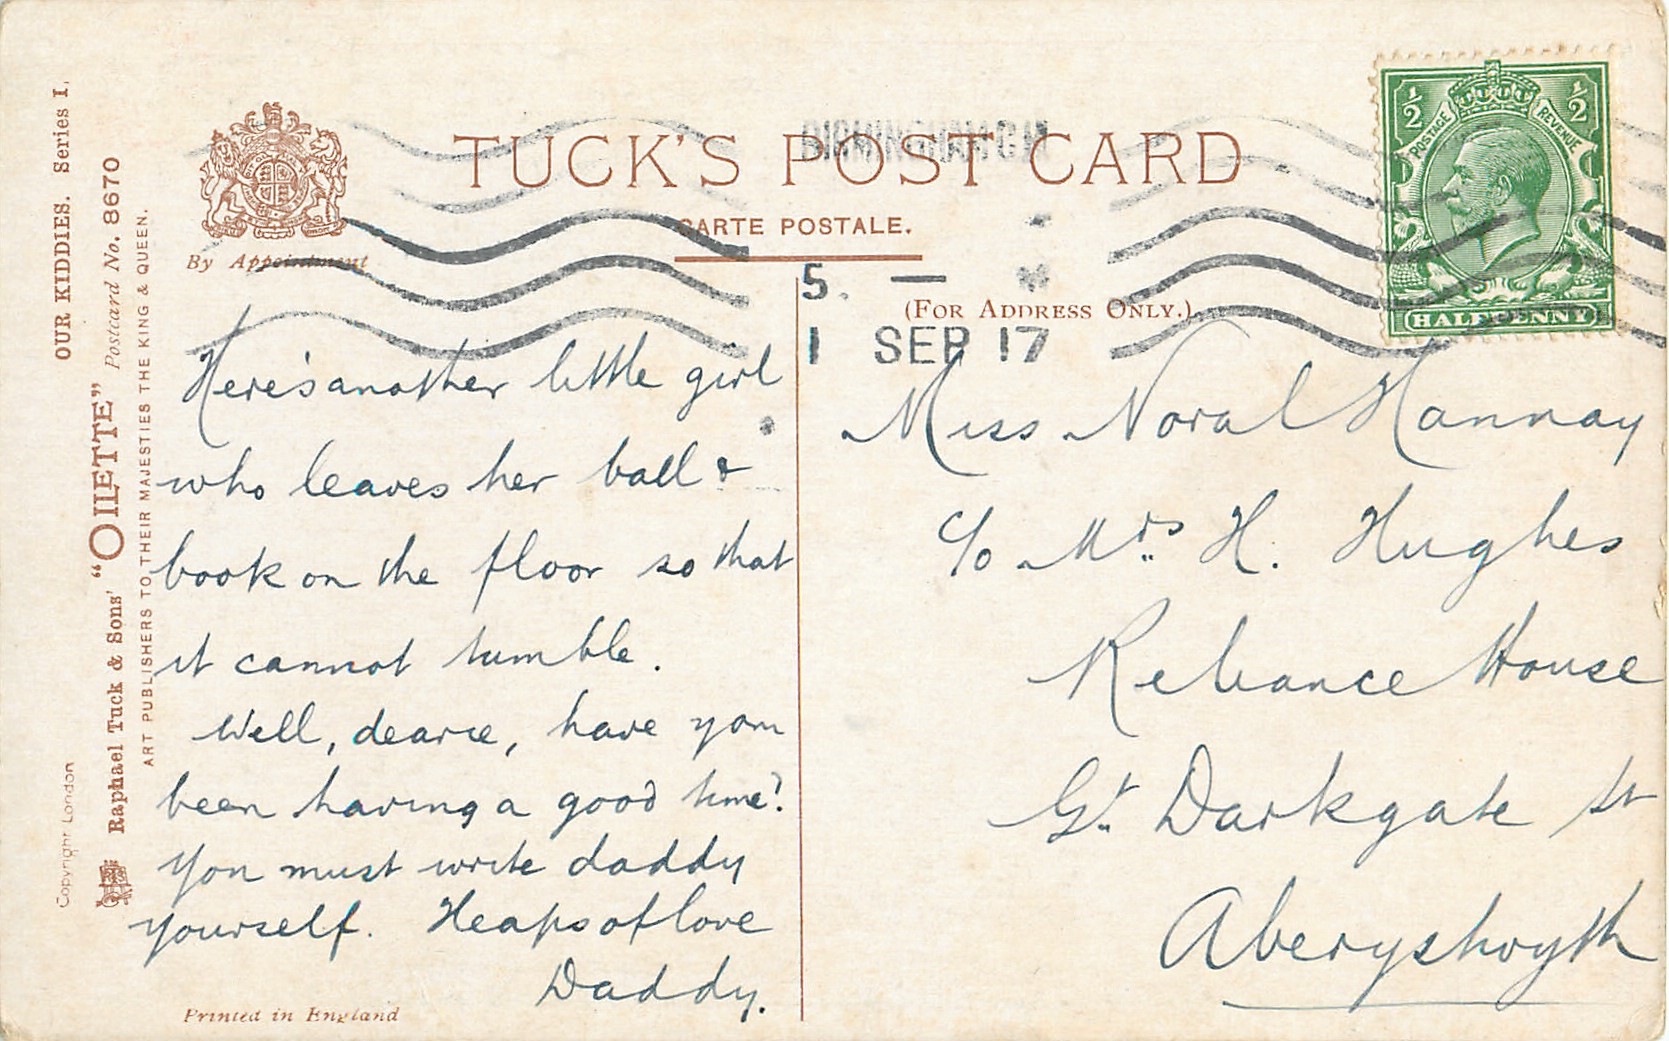 OUR KIDDIES. Series I.
Raphael Tuck & Sons' "OILETTE" Postcard No. 8670
ART PUBLISHERS TO THEIR MAJESTIES THE KING & QUEEN.
Copyright London
By Appointment
TUCK'S POST CARD
CARTE POSTALE.
(FOR ADDRESS ONLY.)
BIRMINGHAM
5. —
1 SEP 17
1/2 1/2
POSTAGE REVENUE
HALFPENNY
Here's another little girl
who leaves her ball &
book on the floor so that
it cannot tumble.
Well, dearie, have you
been having a good time?
You must write daddy
yourself. Heaps of love
Daddy.
Miss Nora L Hannay
c/o Mrs H. Hughes
Reliance House
Gt. Darkgate St
Aberystwyth
Printed in England